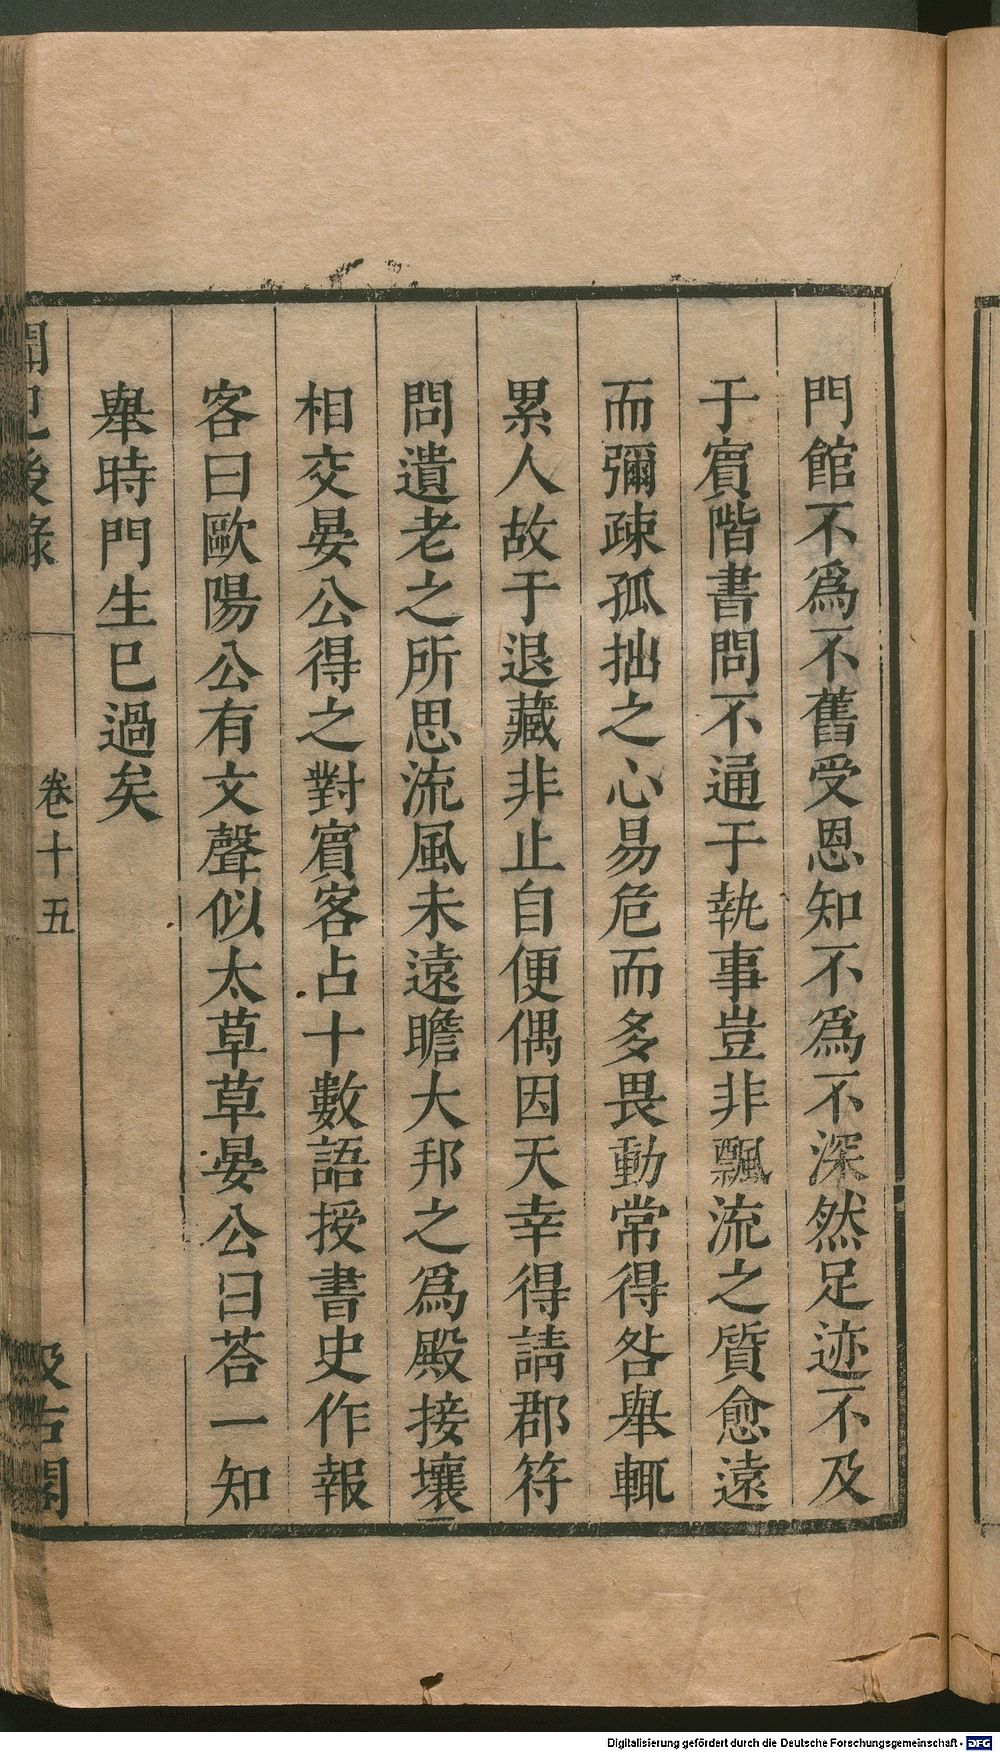 門館不爲不舊受恩知不爲不深然足迹不及
于賓階書問不通于執事豈非飄流之質愈遠
而彌疎孤拙之心易危而多畏動常得咎舉輒
累人故于退藏非止自便偶因天幸得請郡符
問遺老之所思流風未遠瞻大邦之爲殿接壤
相交晏公得之對賓客占十數語授書史作報
客曰歐陽公有文聲似太草草晏公曰荅一知
舉時門生已過矣
聞見後錄
卷十五
汲古閣
Digitalisierung gefördert durch die Deutsche Forschungsgemeinschaft - DFG